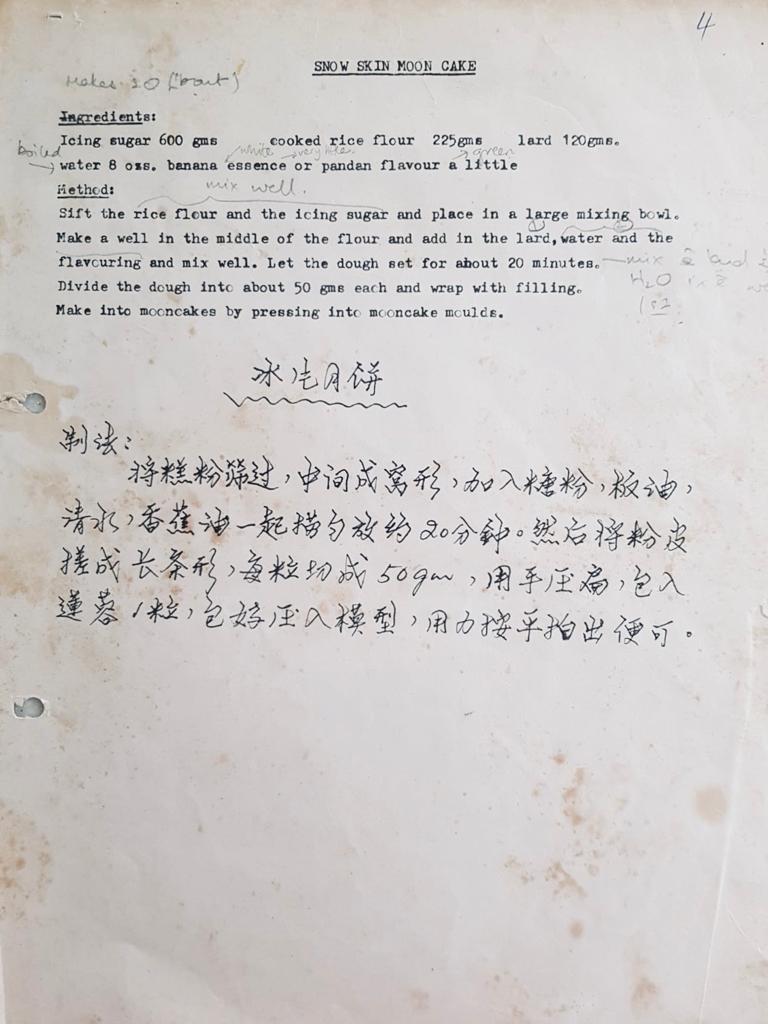 4
SNOW SKIN MOON CAKE
Makes 20 (
Ingredients:
Icing sugar 600 gms cooked rice flour 225gms lard 120gms.
boiled white very little green
water 8 ozs. banana essence or pandan flavour a little
Method: mix well.
Sift the rice flour and the icing sugar and place in a large mixing bowl.
Make a well in the middle of the flour and add in the lard,water and the
flavouring and mix well. Let the dough set for about 20 minutes. mix
H₂O
Divide the dough into about 50 gms each and wrap with filling.
1st
Make into mooncakes by pressing into mooncake moulds.
冰皮月饼
制法:
将糕粉筛过,中间成窝形,加入糖粉,板油,
清水,香蕉油一起捞匀放约20分鈡。然后将粉皮
搓成长条形,每粒切成50gm,用手压扁,包入
蓮蓉1粒,包好压入模型,用力按平拍出便可。